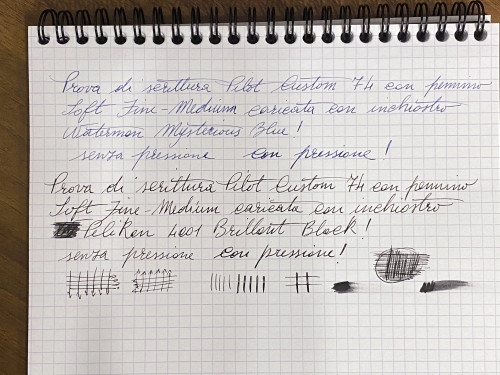 Prova di scrittura Pilot Custom 74 con pennino
Soft Fine-Medium caricata con inchiostro
Waterman Mysterious Blue!
senza pressione con pressione!
Prova di scrittura Pilot Custom 74 con pennino
Soft Fine-Medium caricata con inchiostro
PeliKan 4001 Brillant Black!
senza pressione con pressione!